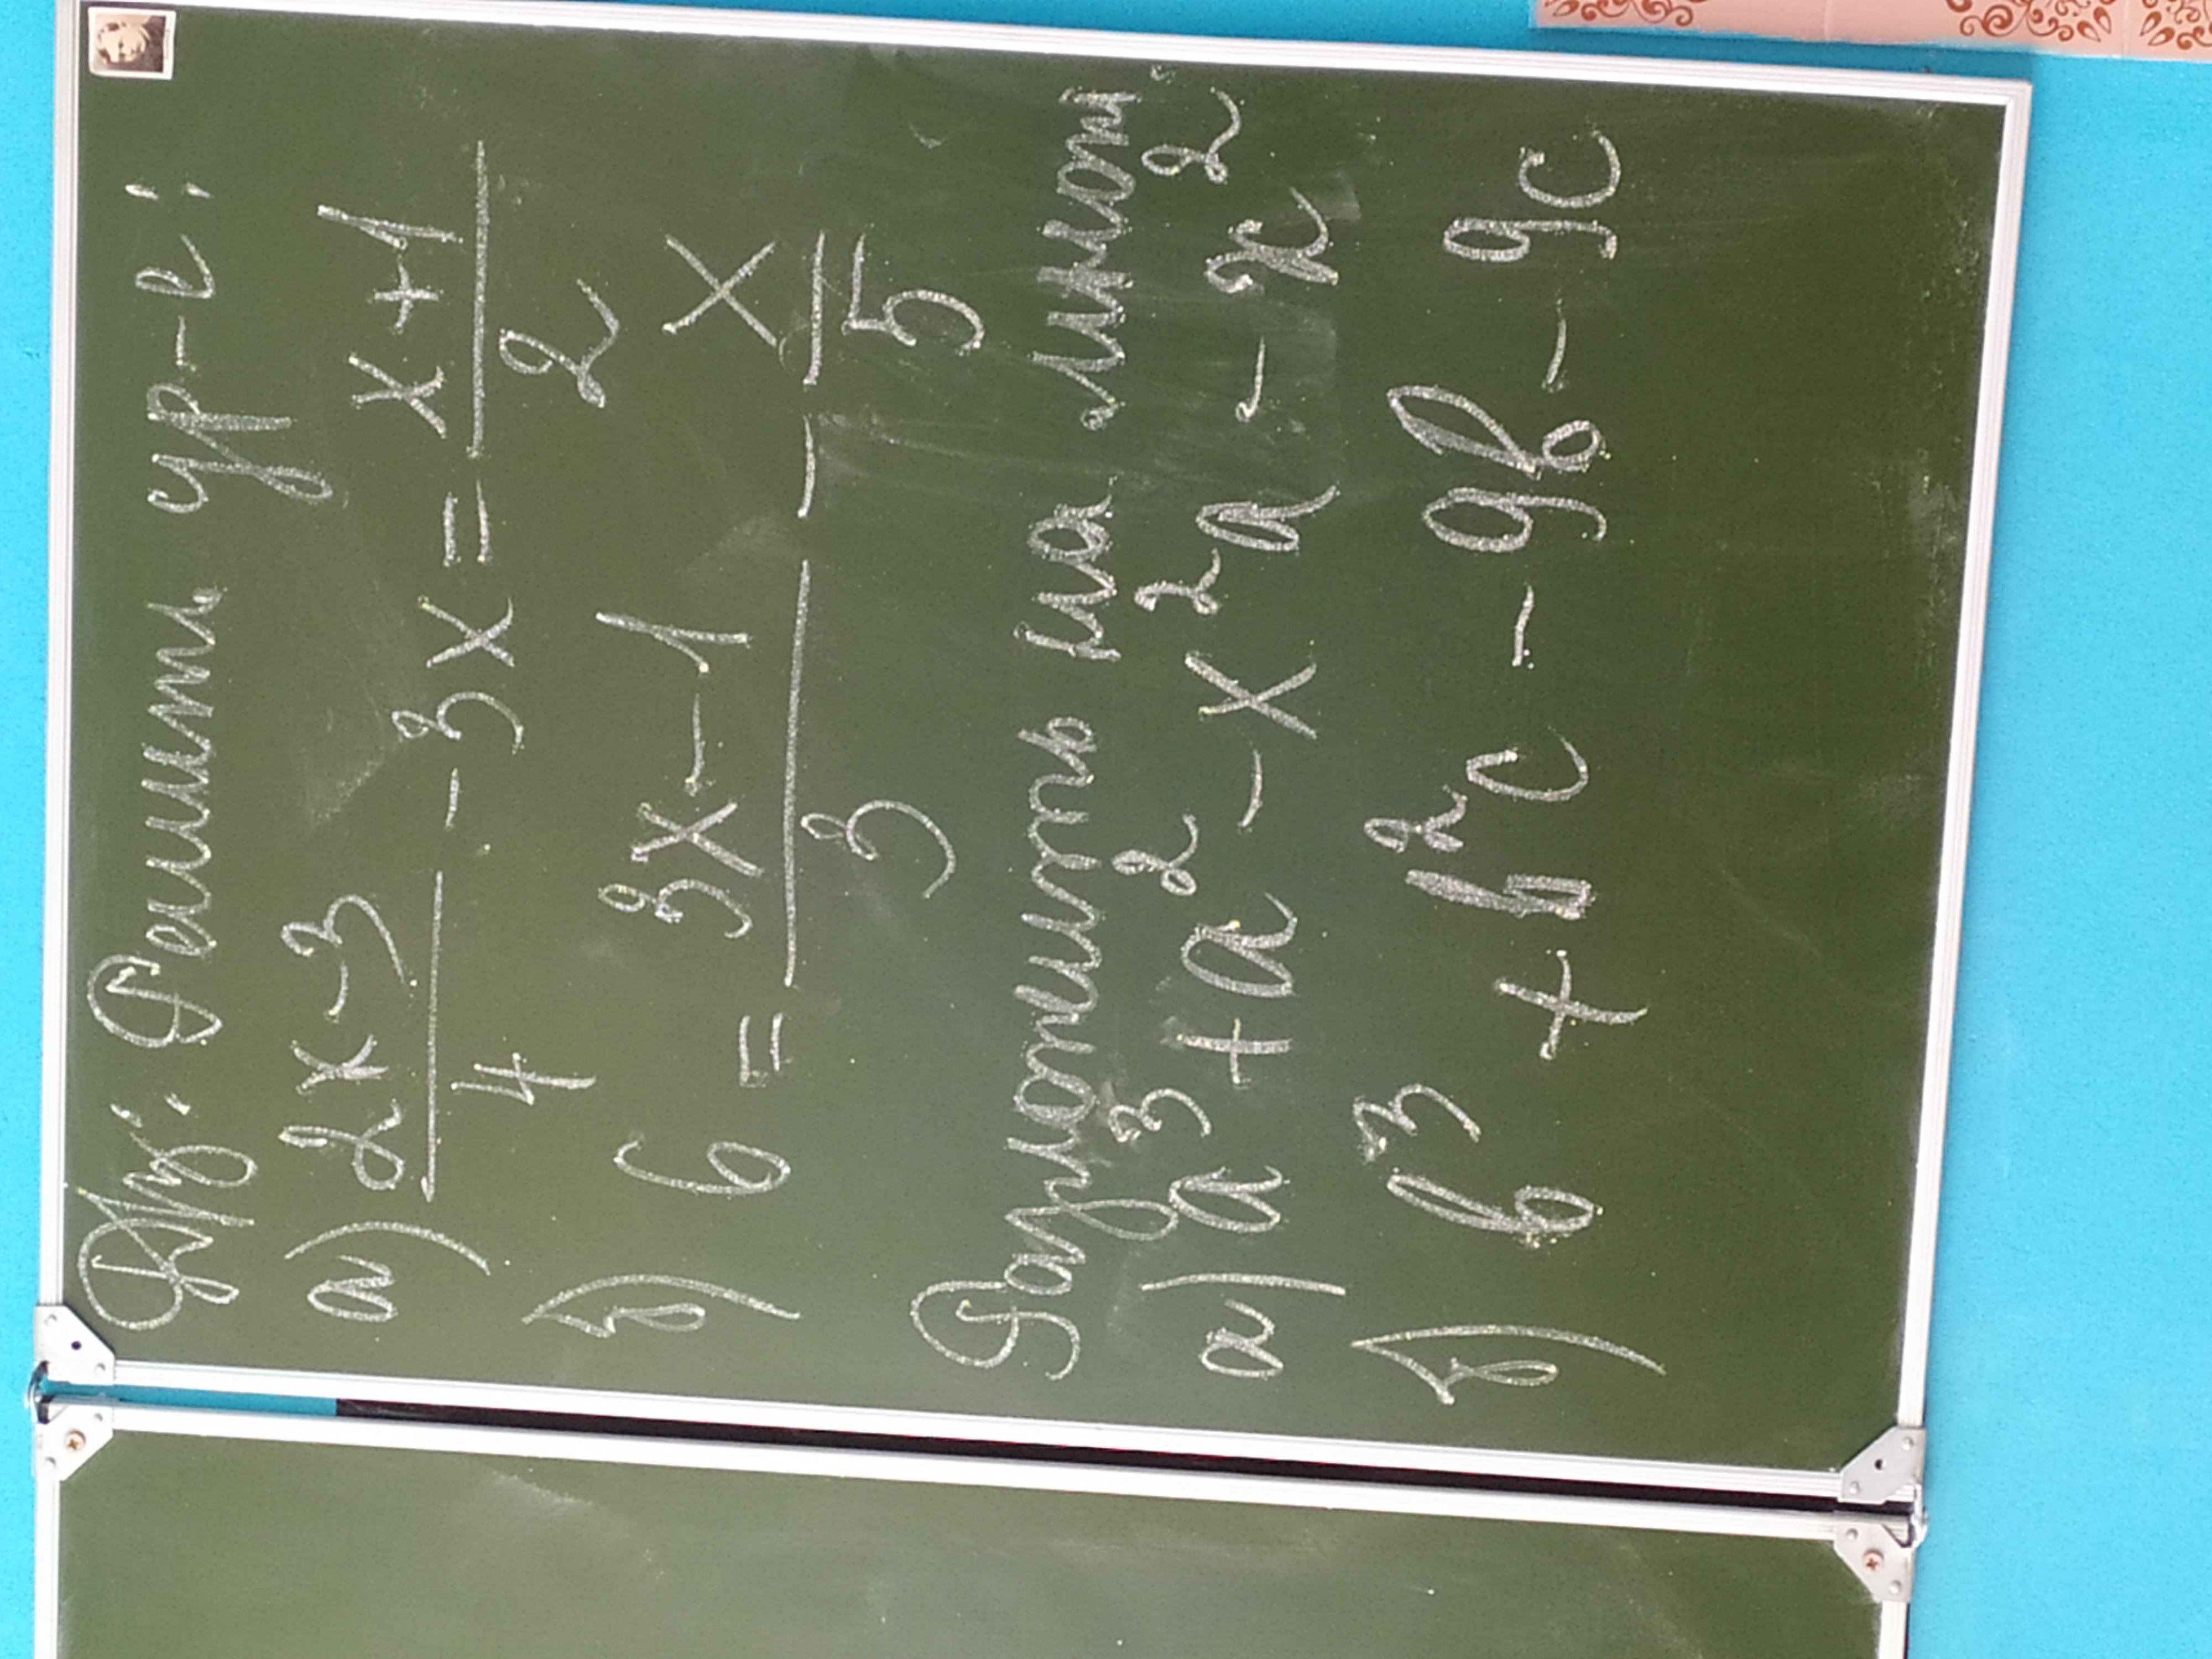 Д/з: Решить ур-е:
а) (2x-3)/4 - 3x = (x+1)/2
б) 6 = (3x-1)/3 - x/5
Разложить на множ
а) a³ + a² - x²a - x²
б) b³ + b²c - 9b - 9c